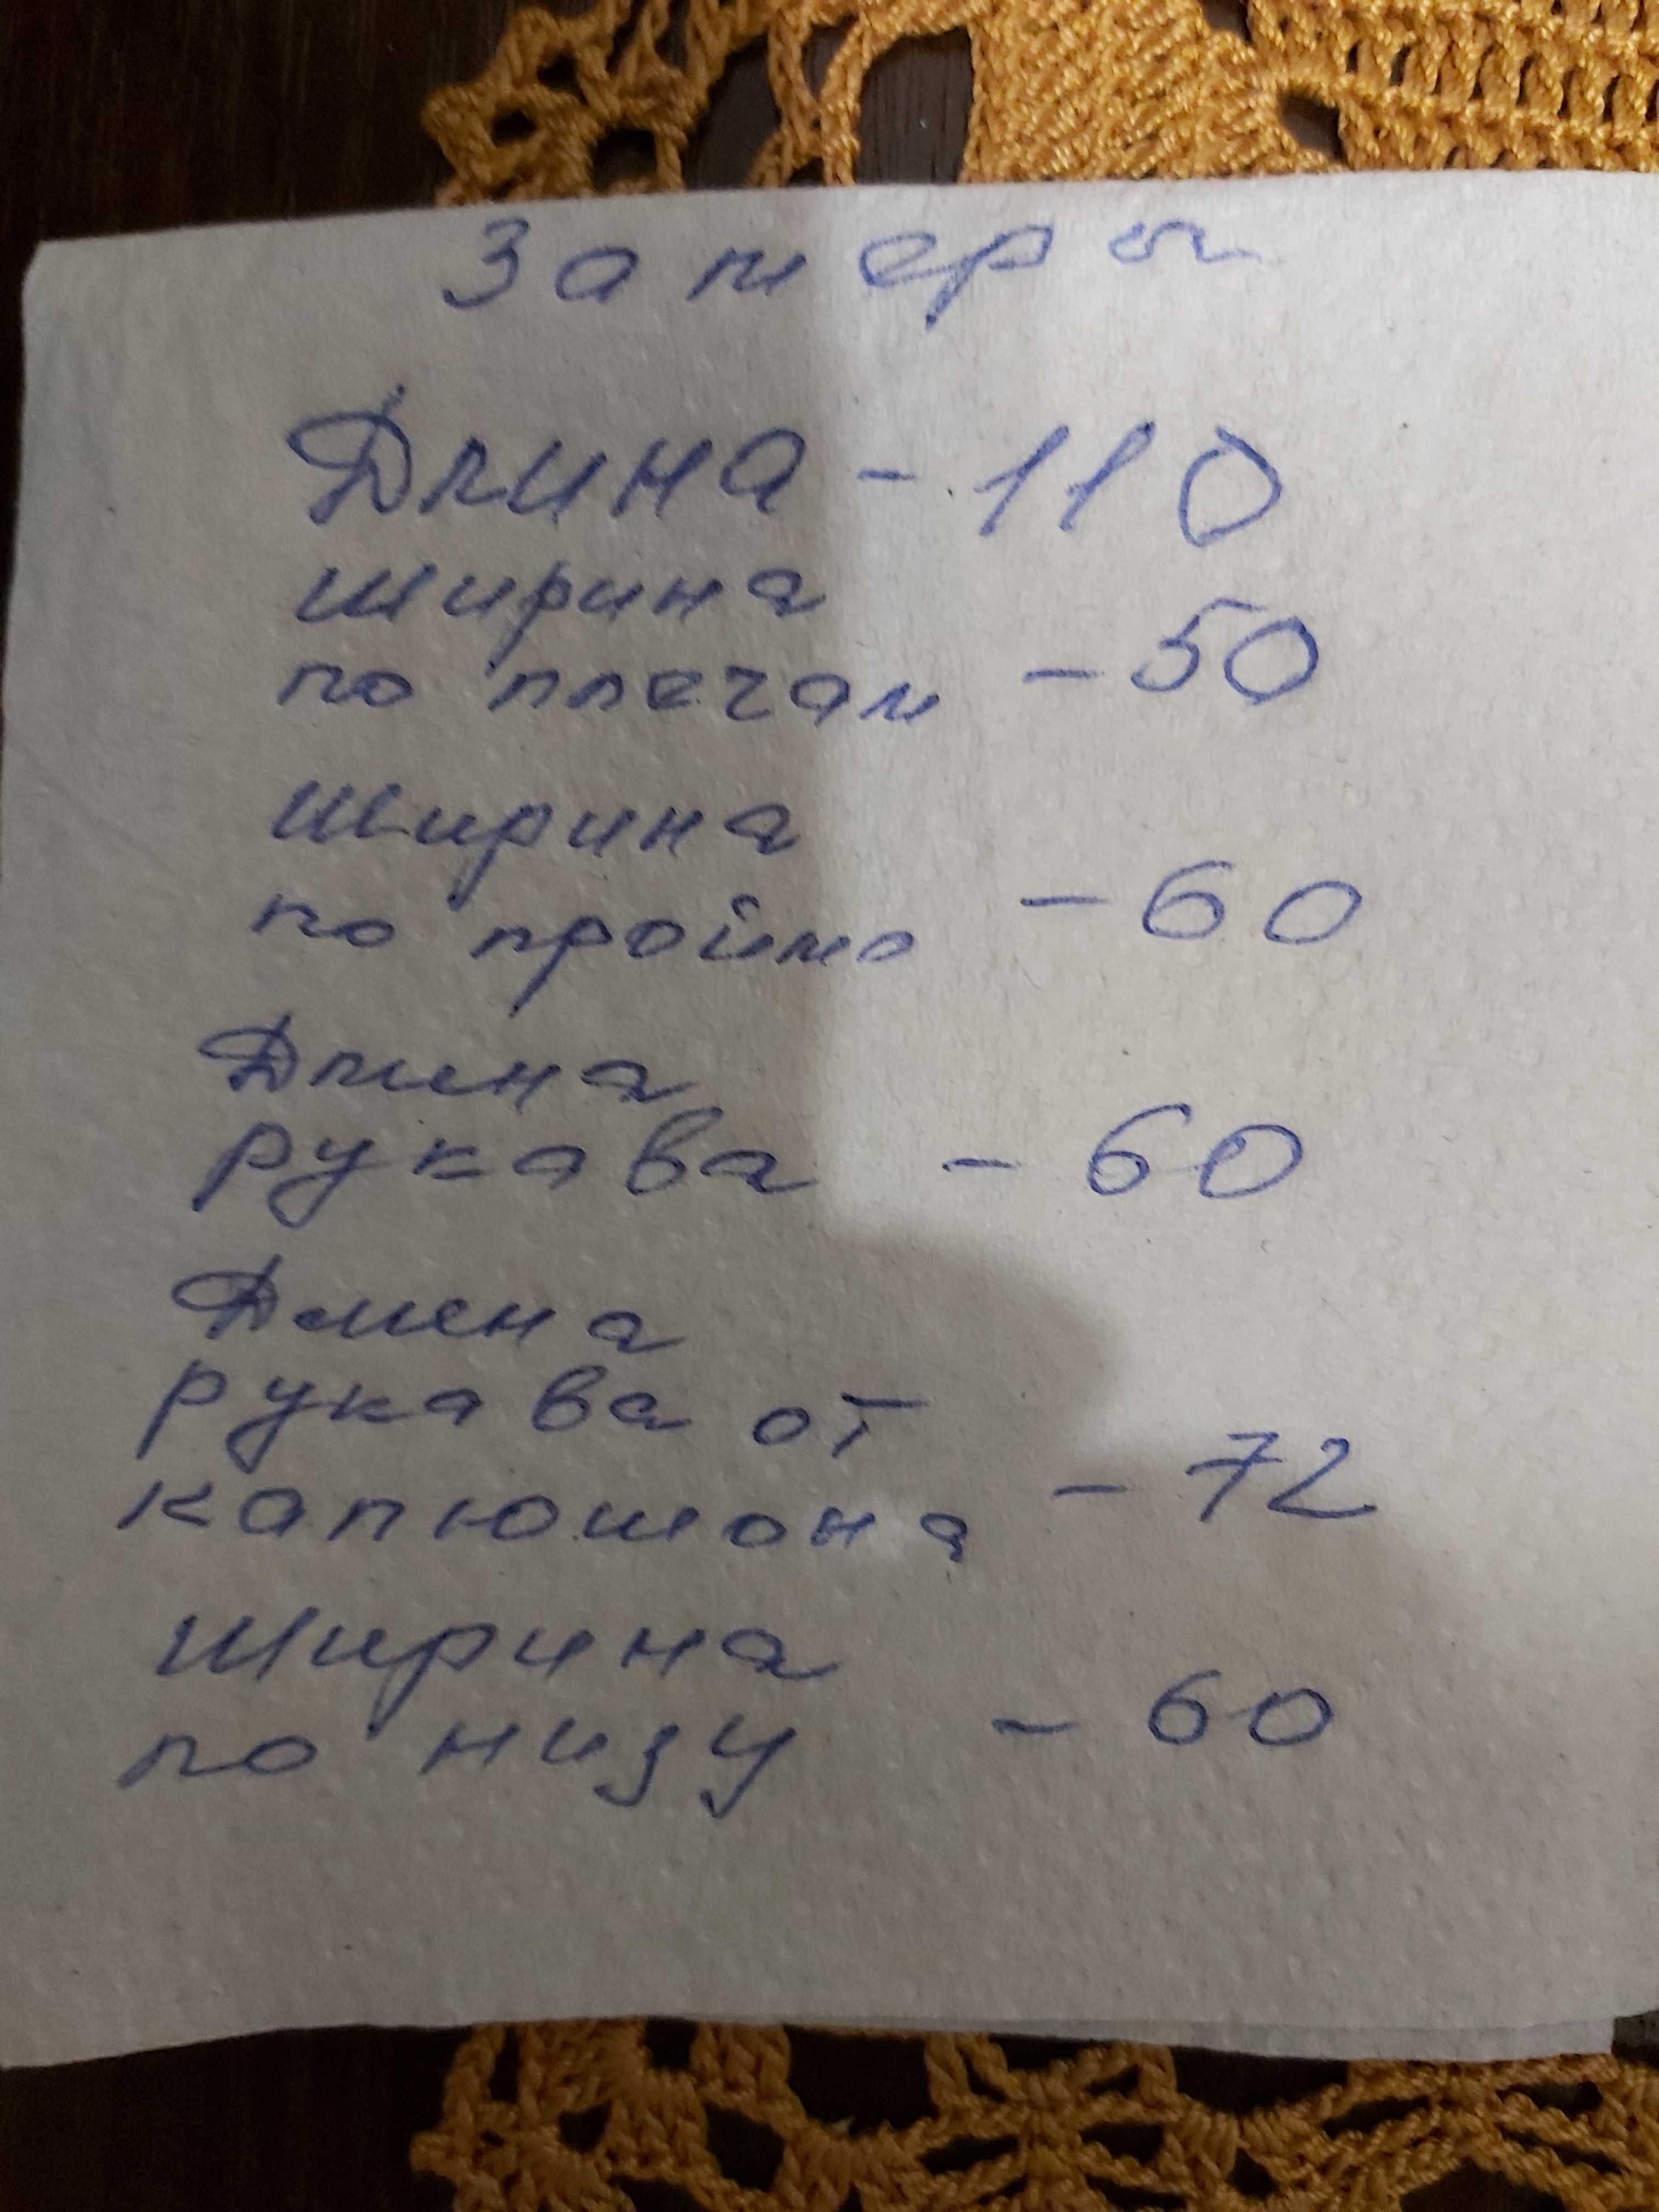 Замеры
Длина - 110
ширина
по плечам - 50
ширина
по пройме - 60
Длина
рукава - 60
Длина
рукава от
капюшона - 72
ширина
по низу - 60